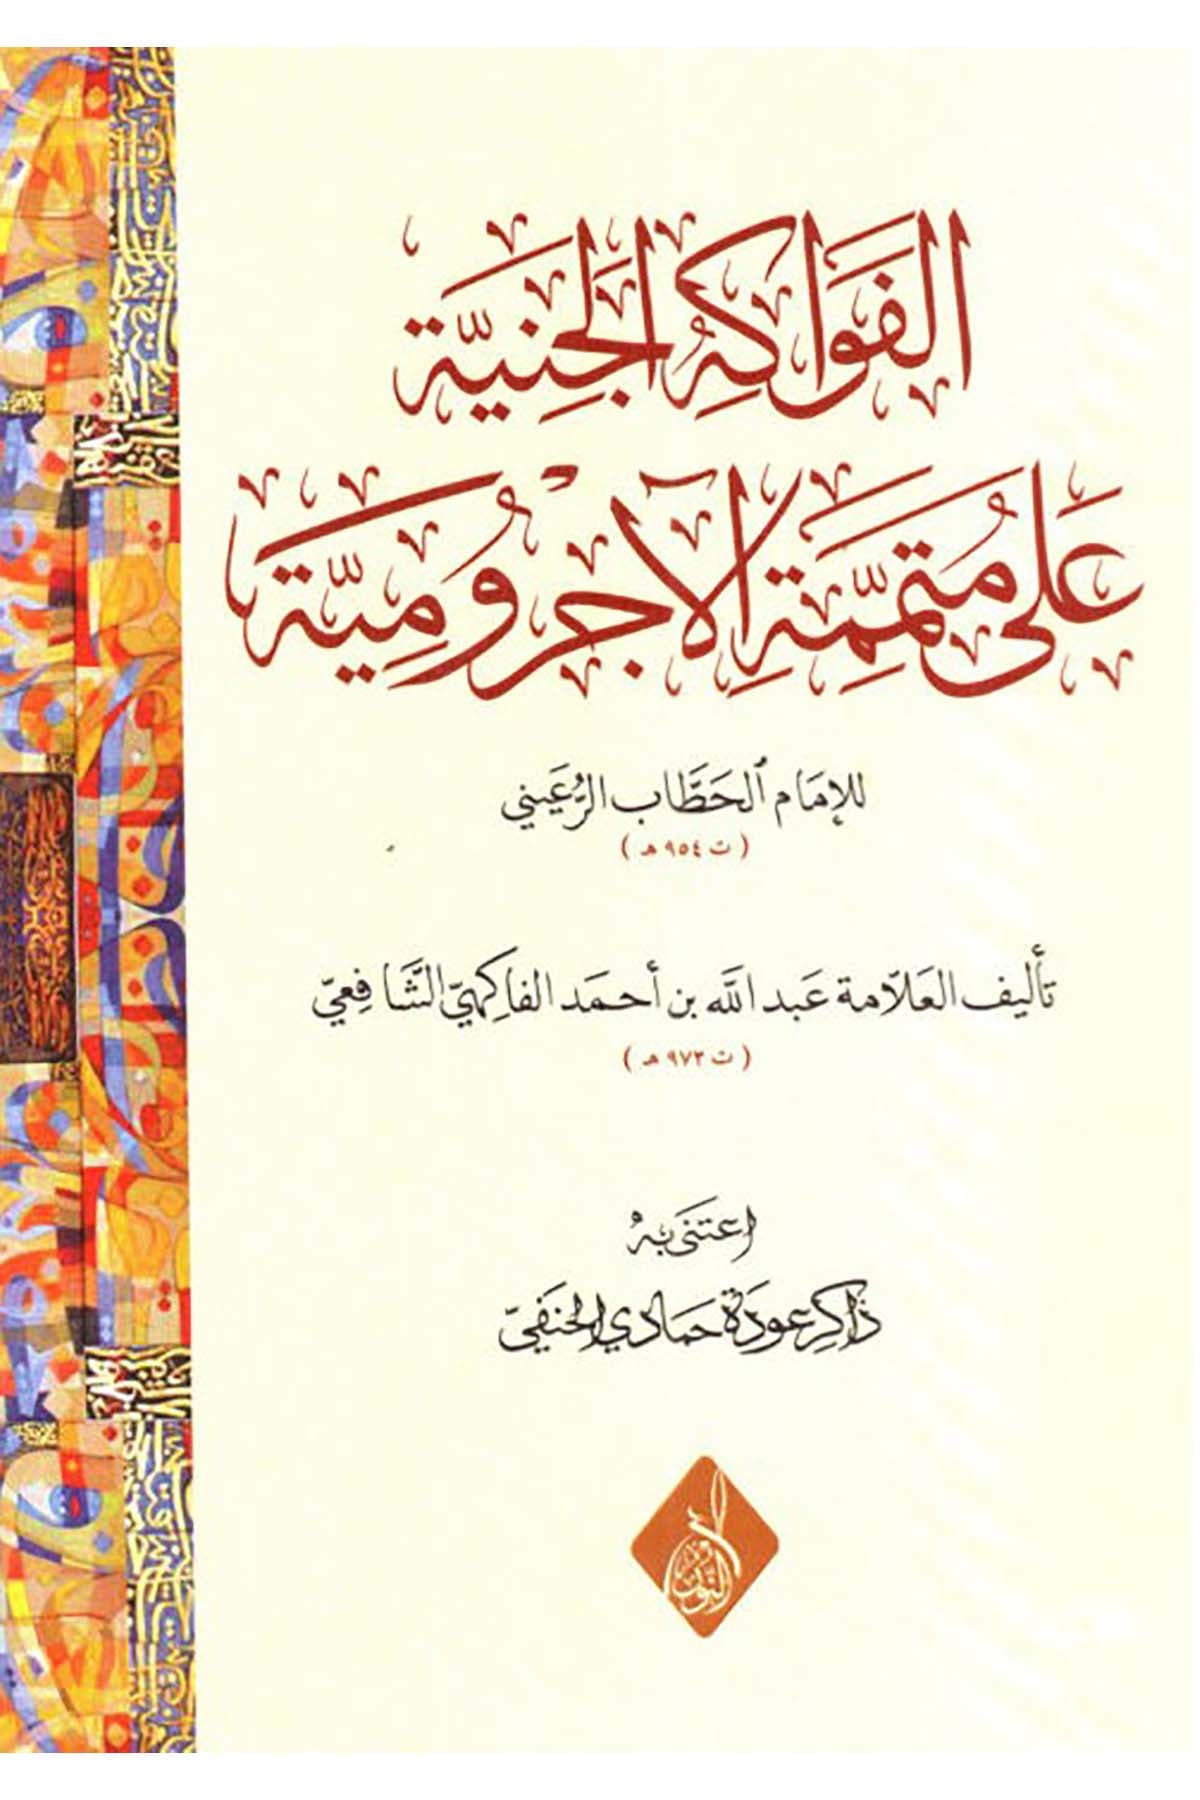 الفَوَاكِهُ الجَنِيَّة
عَلَى مُتَمِّمَةِ الآجُرْومِيَّة
للإمَام الحَطَّاب الرُّعَيني
( ت ٩٥٤ هـ )
تأليف العَلّامة عَبد الله بن أحمَد الفاكِهيّ الشَّافِعيّ
( ت ٩٧٢ هـ )
اعتَنى بِهِ
ذَاكِر عودَة حمَادي الحنَفيّ